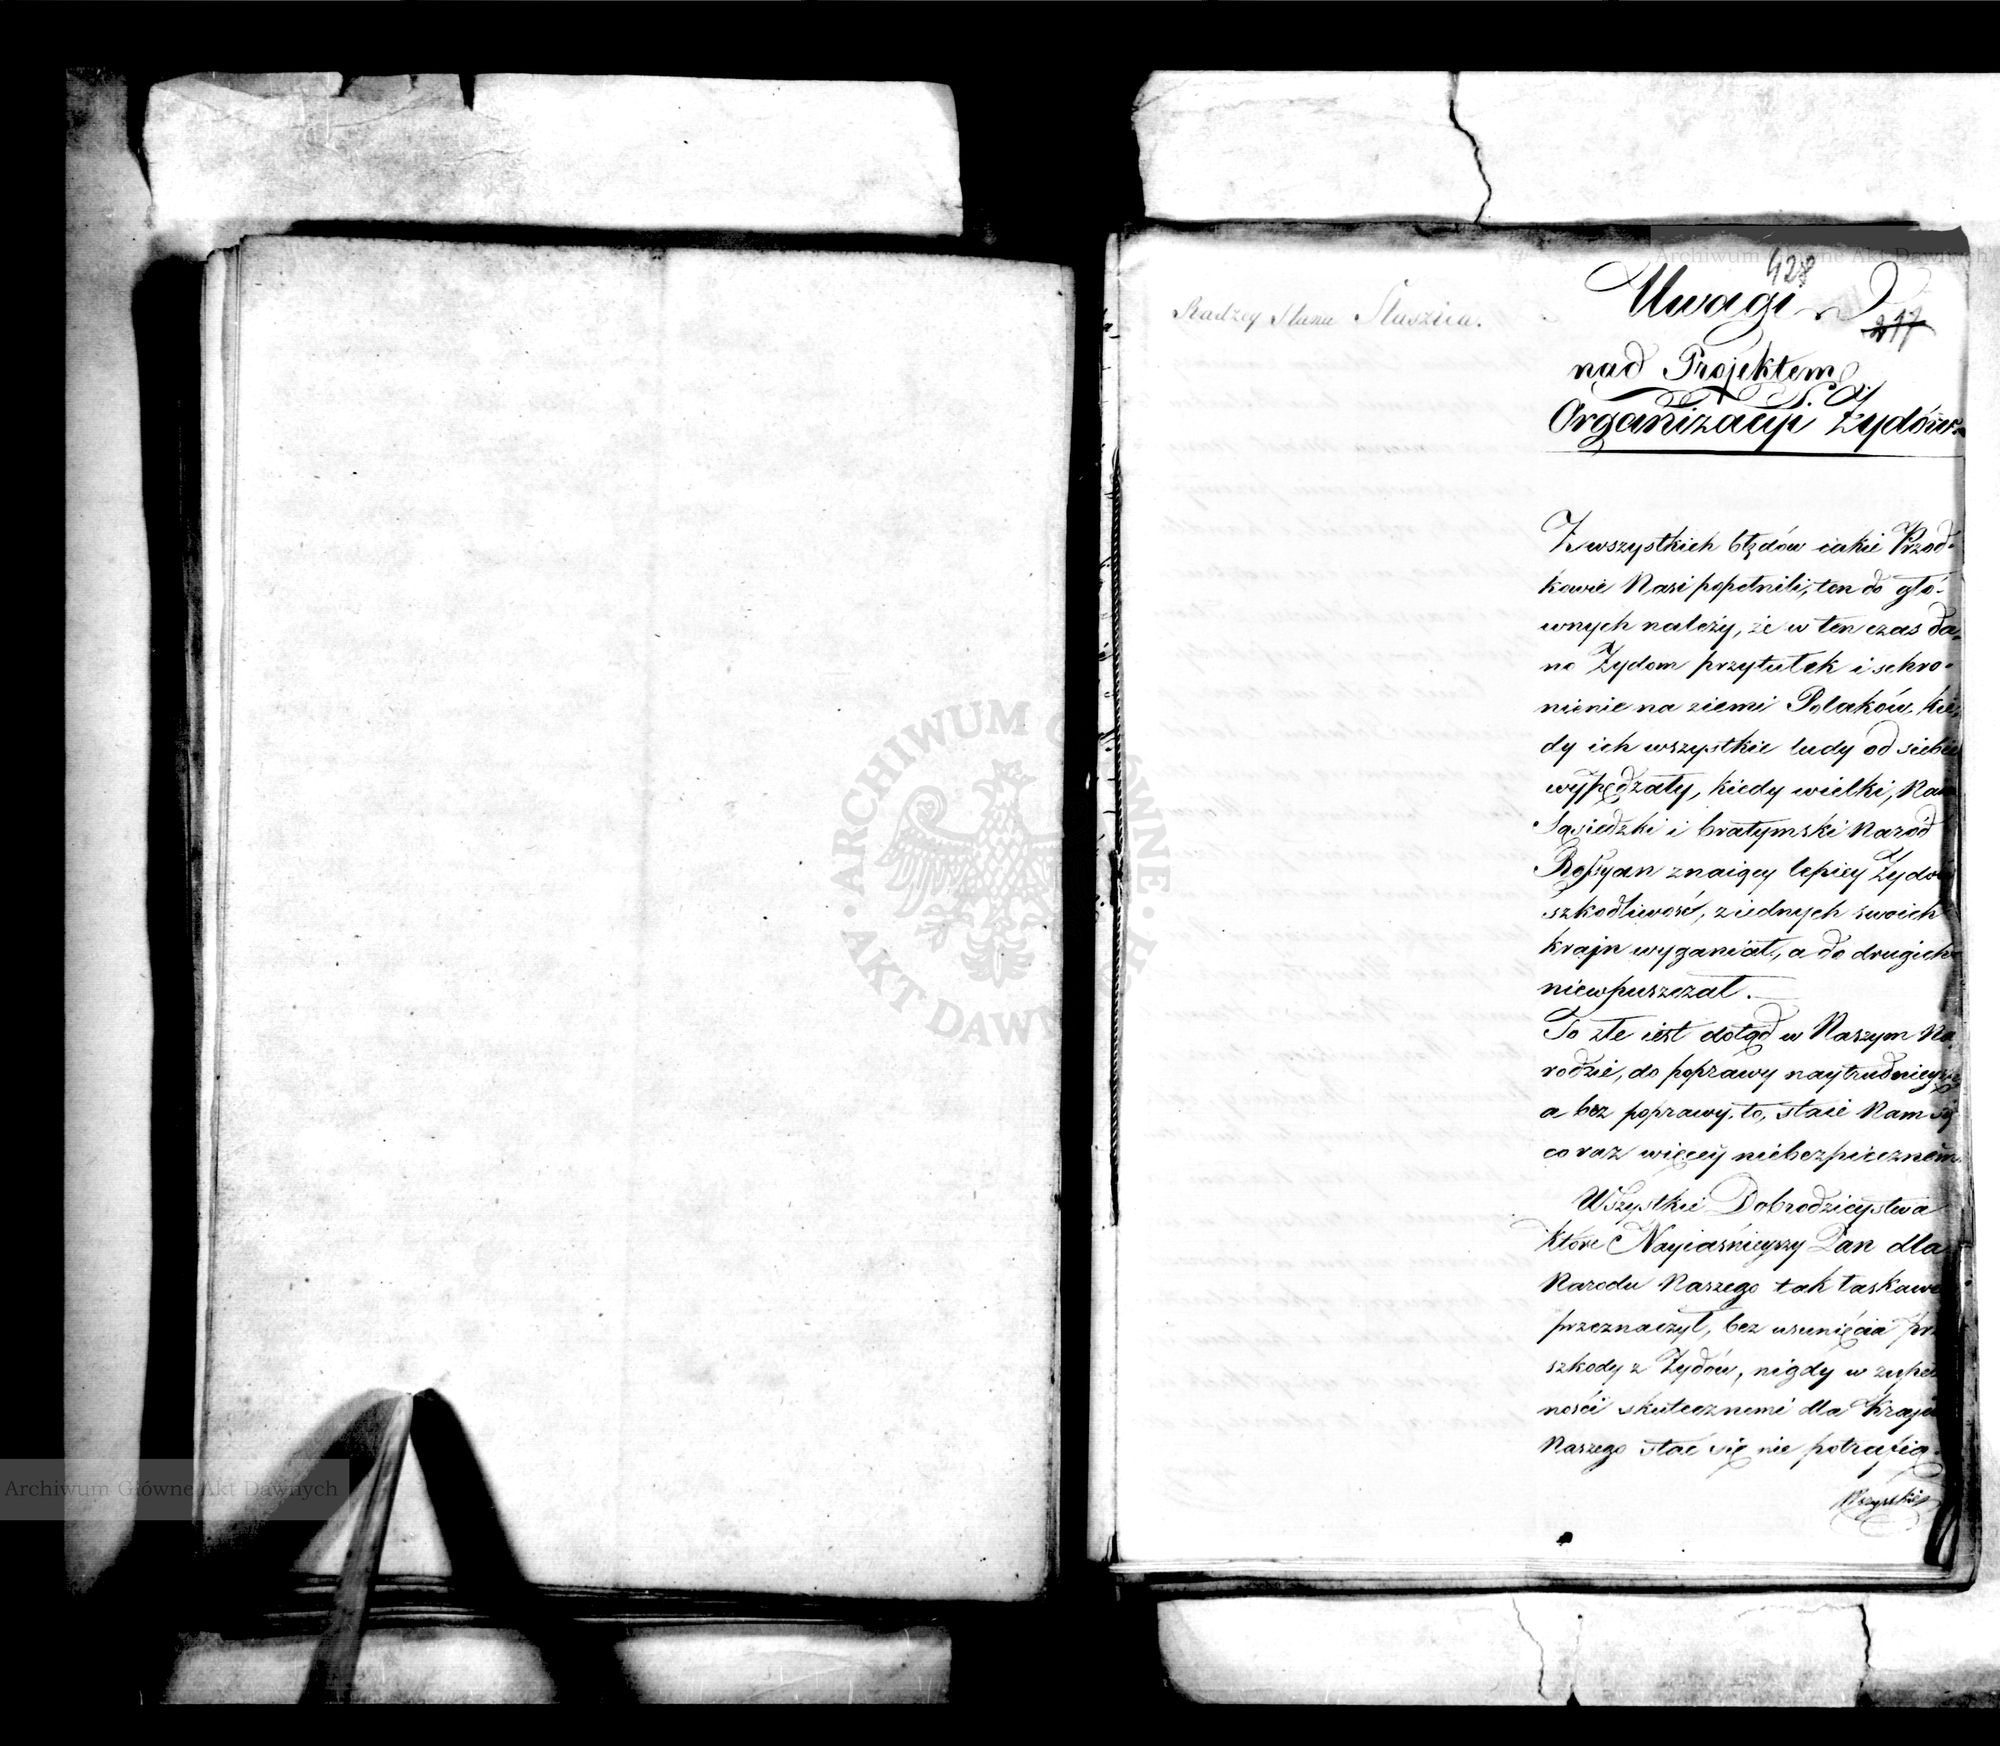 Archiwum Główne Akt Dawnych
428
Radzcy Stanu Staszica.
Uwagi
217
nad Projektem
Organizacyi Żydów
Z wszystkich błędów iakie Przod-
kowie Nasi popełnili, ten do głó-
wnych należy, że w ten czas da-
no Żydom przytułek i schro-
nienie na ziemi Polaków, kie-
dy ich wszystkie ludy od siebie
wypędzały, kiedy wielki, Nam
Sąsiedzki i bratymski Naród
Rossyan znaiący lepiey Żydów
szkodliwość, z iednych swoich
krajn wyganiał, a do drugich
niewpuszczał.
To złe iest dotąd w Naszym Na-
rodzie, do poprawy naytrudnieysze
a bez poprawy, to, staie Nam się
coraz więcey niebezpiecznem.
Wszystkie Dobrodzieystwa
które Nayiaśnieyszy Pan dla
Narodu Naszego tak łaskawie
przeznaczył, bez usunięcia prze
szkody z Żydów, nigdy w zupeł
ności skutecznemi dla Kraju
Naszego stać się nie potrafią.
Wszystkie
ARCHIWUM GŁÓWNE AKT DAWNYCH
Archiwum Główne Akt Dawnych